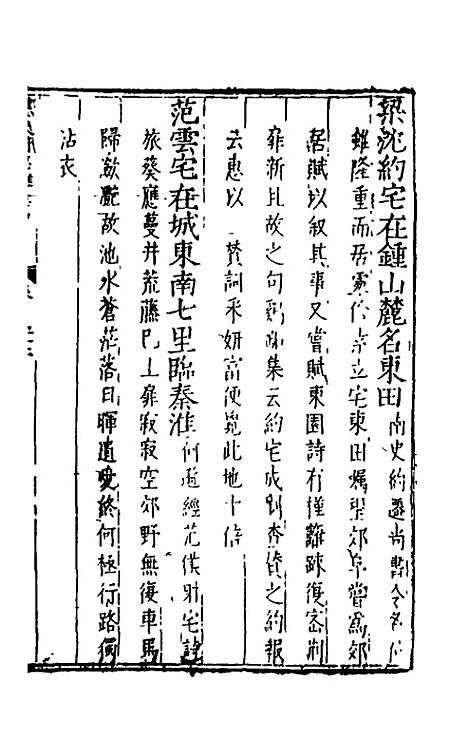 梁沈約宅在鍾山麓名東田南史約遷尚書令名位
雖隆重而居處儉素立宅東田矚望郊阜嘗為郊
居賦以叙其事又嘗賦東園詩有槿籬踈復密荆
扉新且故之句劉 集云約宅成劉杳贊之約報
云惠以 贊詞采妍富便覺此地十倍
范雲宅在城東南七里臨秦淮何遜經范僕射宅詩
旅葵應蔓井荒藤巳上扉寂寂空郊野無復車馬
歸瀲灔故池水蒼茫落日暉遺愛終何極行路獨
沾衣